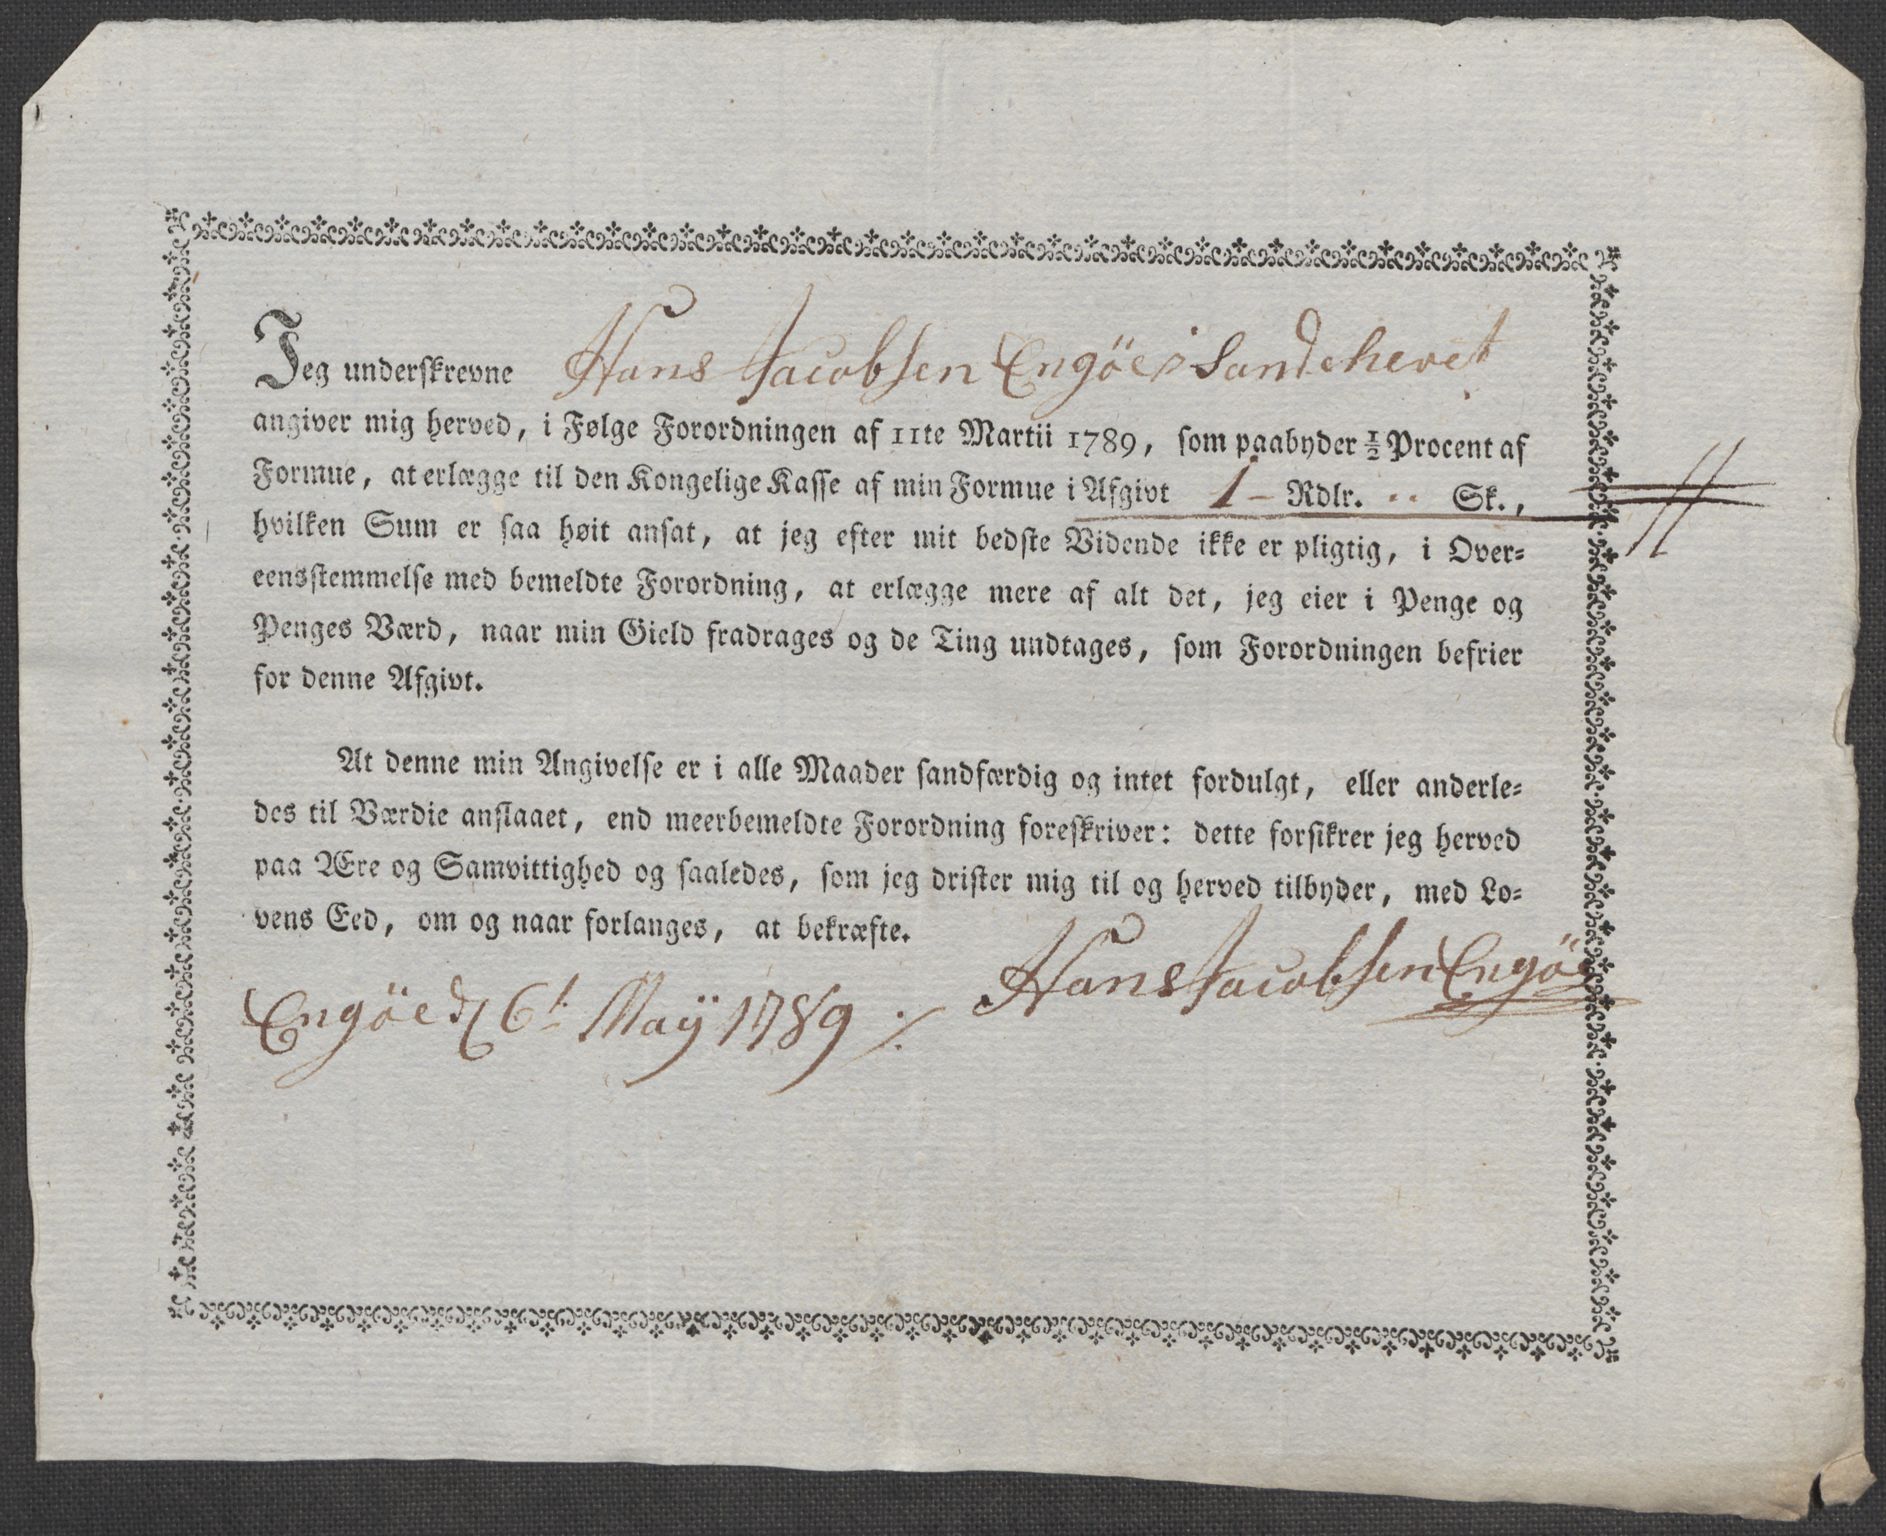 Jeg underskrevne Hans Jacobsen Engöe i Sandeheret
angiver mig herved, i Følge Forordningen af 11te Martii 1789, som paabyder ½ Procent af
Formue, at erlægge til den Kongelige Kasse af min Formue i Afgivt 1 – Rdlr. .. Sk.,
hvilken Sum er saa høit ansat, at jeg efter mit bedste Vidende ikke er pligtig, i Over-
eensstemmelse med bemeldte Forordning, at erlægge mere af alt det, jeg eier i Penge og
Penges Værd, naar min Gield fradrages og de Ting undtages, som Forordningen befrier
for denne Afgivt.
At denne min Angivelse er i alle Maader sandfærdig og intet fordulgt, eller anderle-
des til Værdie anslaaet, end meerbemeldte Forordning foreskriver: dette forsikrer jeg herved
paa Ære og Samvittighed og saaledes, som jeg drister mig til og herved tilbyder, med Lo-
vens Eed, om og naar forlanges, at bekræfte.
Hans Jacobsen Engöe
Engöe d 6t Maÿ 1789